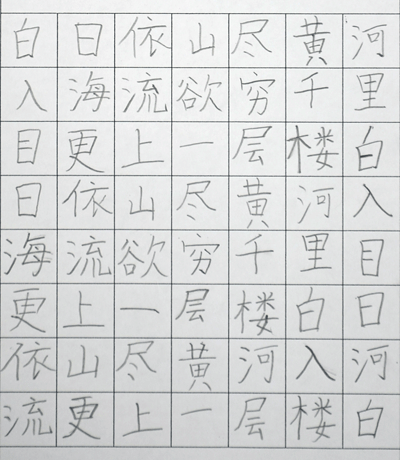 白日依山尽黄河
入海流欲穷千里
目更上一层楼白
日依山尽黄河入
海流欲穷千里目
更上一层楼白日
依山尽黄河入河
流更上一层楼白